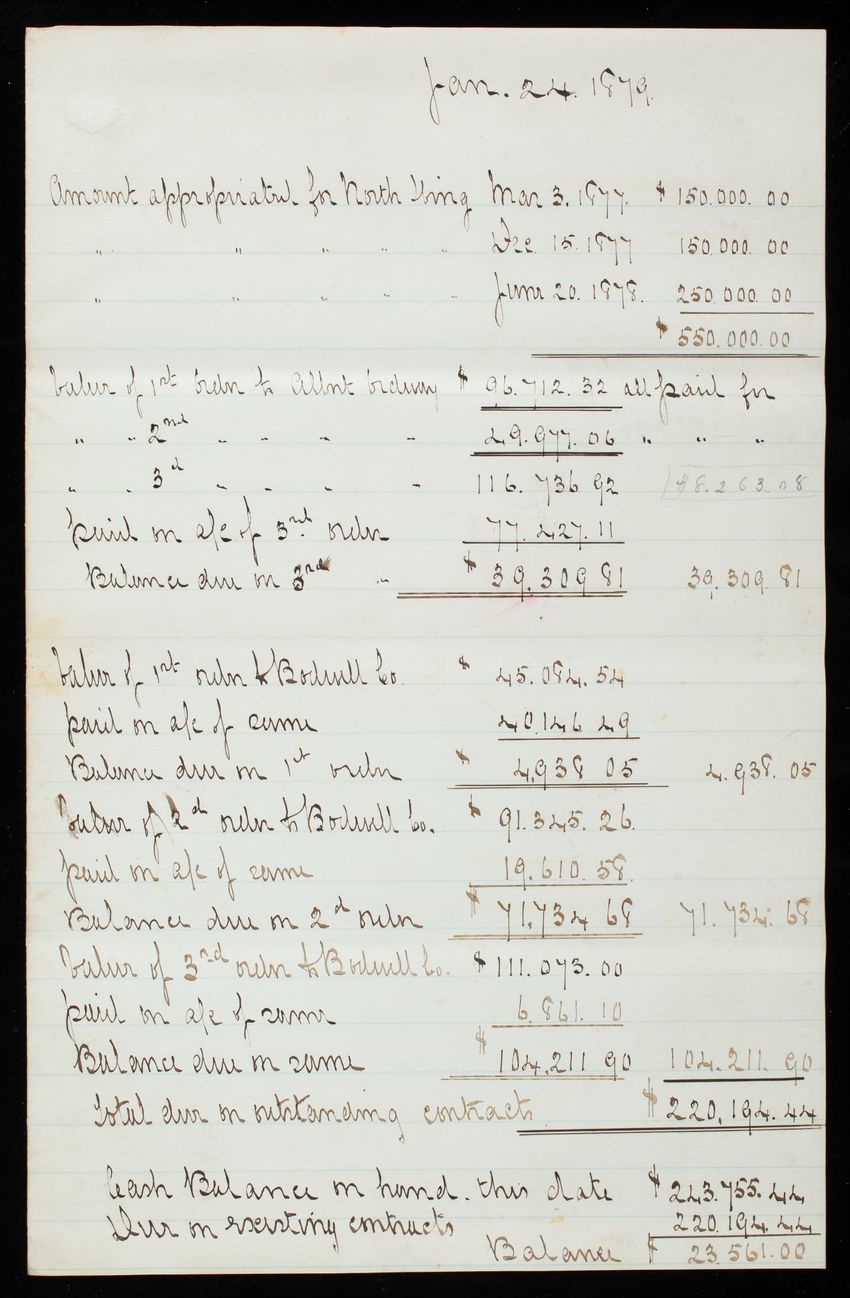 Jan. 24. 1879.
Amount appropriated for North Wing Mar 3. 1877. $ 150.000. 00
" " " " " Dec. 15. 1877 150.000. 00
" " " " " June 20. 1878. 250.000. 00
$ 550.000.00
Value of 1st order to Albert Ordway $ 96.712.32 all paid for
" " 2nd " " " " 49.977.06 " " "
" " 3d " " " " 116.736 92 48.263.08
paid on a/c of 3rd order 77.427.11
Balance due on 3rd " $ 39.309 81 39.309.81
Value of 1st order to Bodwell Co. $ 45.084.54
paid on a/c of same 40.146 49
Balance due on 1st order $ 4,938 05 4.938.05
Value of 2d order to Bodwell Co. $ 91.345.26.
paid on a/c of same 19.610.58.
Balance due on 2d order $ 71,734 68 71.734.68
Value of 3rd order to Bodwell Co. $ 111.073.00
paid on a/c of same 6.861.10
Balance due on same $ 104,211 90 104.211.90
Total due on outstanding contracts $ 220,194.44
Cash Balance on hand. this date $ 243.755.44
Due on existing contracts 220.194.44
Balance $ 23.561.00